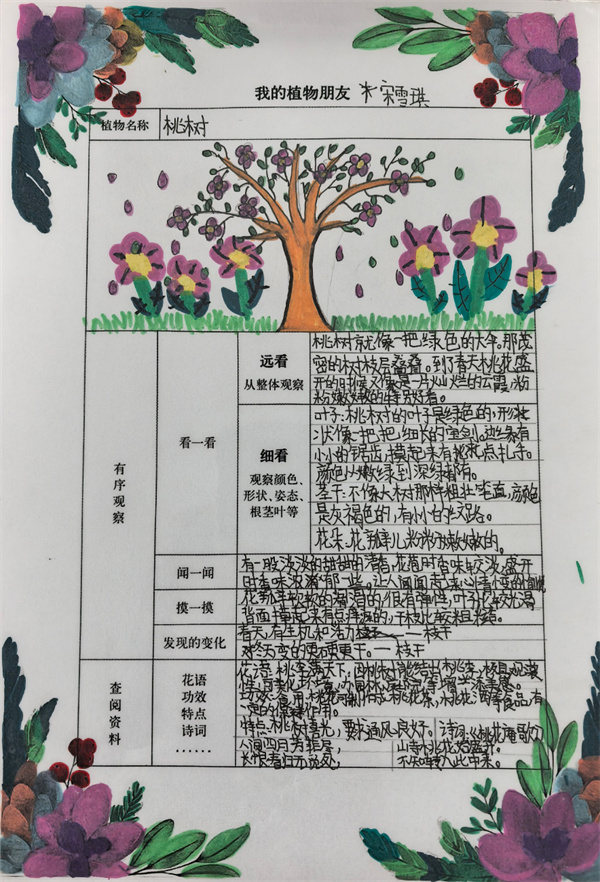 我的植物朋友 宋雪琪
植物名称 桃树
有序观察
看一看
远看
从整体观察
桃树就像一把绿色的大伞。那茂
密的树枝层层叠叠。到了春天桃花盛
开的时候又像是一片灿烂的云霞,粉
粉嫩嫩的特别好看。
细看
观察颜色、
形状、姿态、
根茎叶等
叶子:桃树的叶子是绿色的,形状
状像一把把细长的宝剑。边缘有
小小的锯齿,摸起来有点扎手。
颜色从嫩绿到深绿都有。
茎干:不像大树那样粗壮笔直,颜色
是灰褐色的,有小小的纹路。
花朵:花瓣儿粉粉嫩嫩的。
闻一闻
有一股淡淡的甜甜的清香,花苞时香味较淡,盛开
时香味浓郁一些。让人闻闻起来心情变的愉
摸一摸
花瓣是软软的滑滑的很有弹性,叶子比较光滑
背面摸起来有点 的,干枝比较粗糙。
发现的变化
春天,有生机和活力 — 枝干
冬天变的更 更干。— 枝干
查阅资料
花语
功效
特点
诗词
……
花语:桃李满天下,因桃树能结出桃李,极具观赏
功效:食用,桃花可制作成桃花茶、桃花酒等食品,有
一定的 作用。
特点:桃树喜光,要求通风良好。诗词:《桃花庵歌》
人间四月芳菲尽, 山寺桃花始盛开。
长恨春归无觅处, 不知转入此中来。